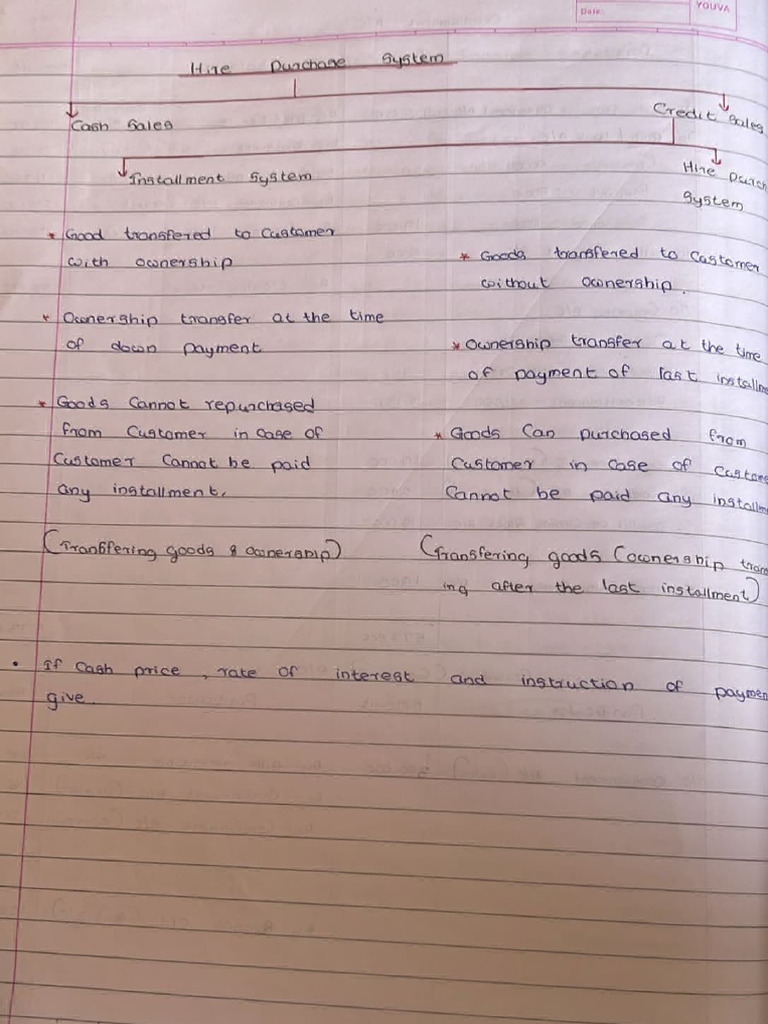 Date:
YOUVA
Hire Purchase System
Cash Sales
Credit Sales
Installment System
Hire Purch
System
* Good transfered to Customer
with ownership
* Ownership transfer at the time
of down payment
* Goods Cannot repurchased
from Customer in case of
Customer Cannot be paid
any installment.
(Transfering goods & ownership)
* Goods transfered to Customer
without ownership.
* Ownership transfer at the time
of payment of last installme
* Goods Can purchased from
Customer in case of Custome
Cannot be paid any installm
(Transfering goods (ownership tran
ing after the last installment)
• If Cash price, rate of interest and instruction of paymen
give.